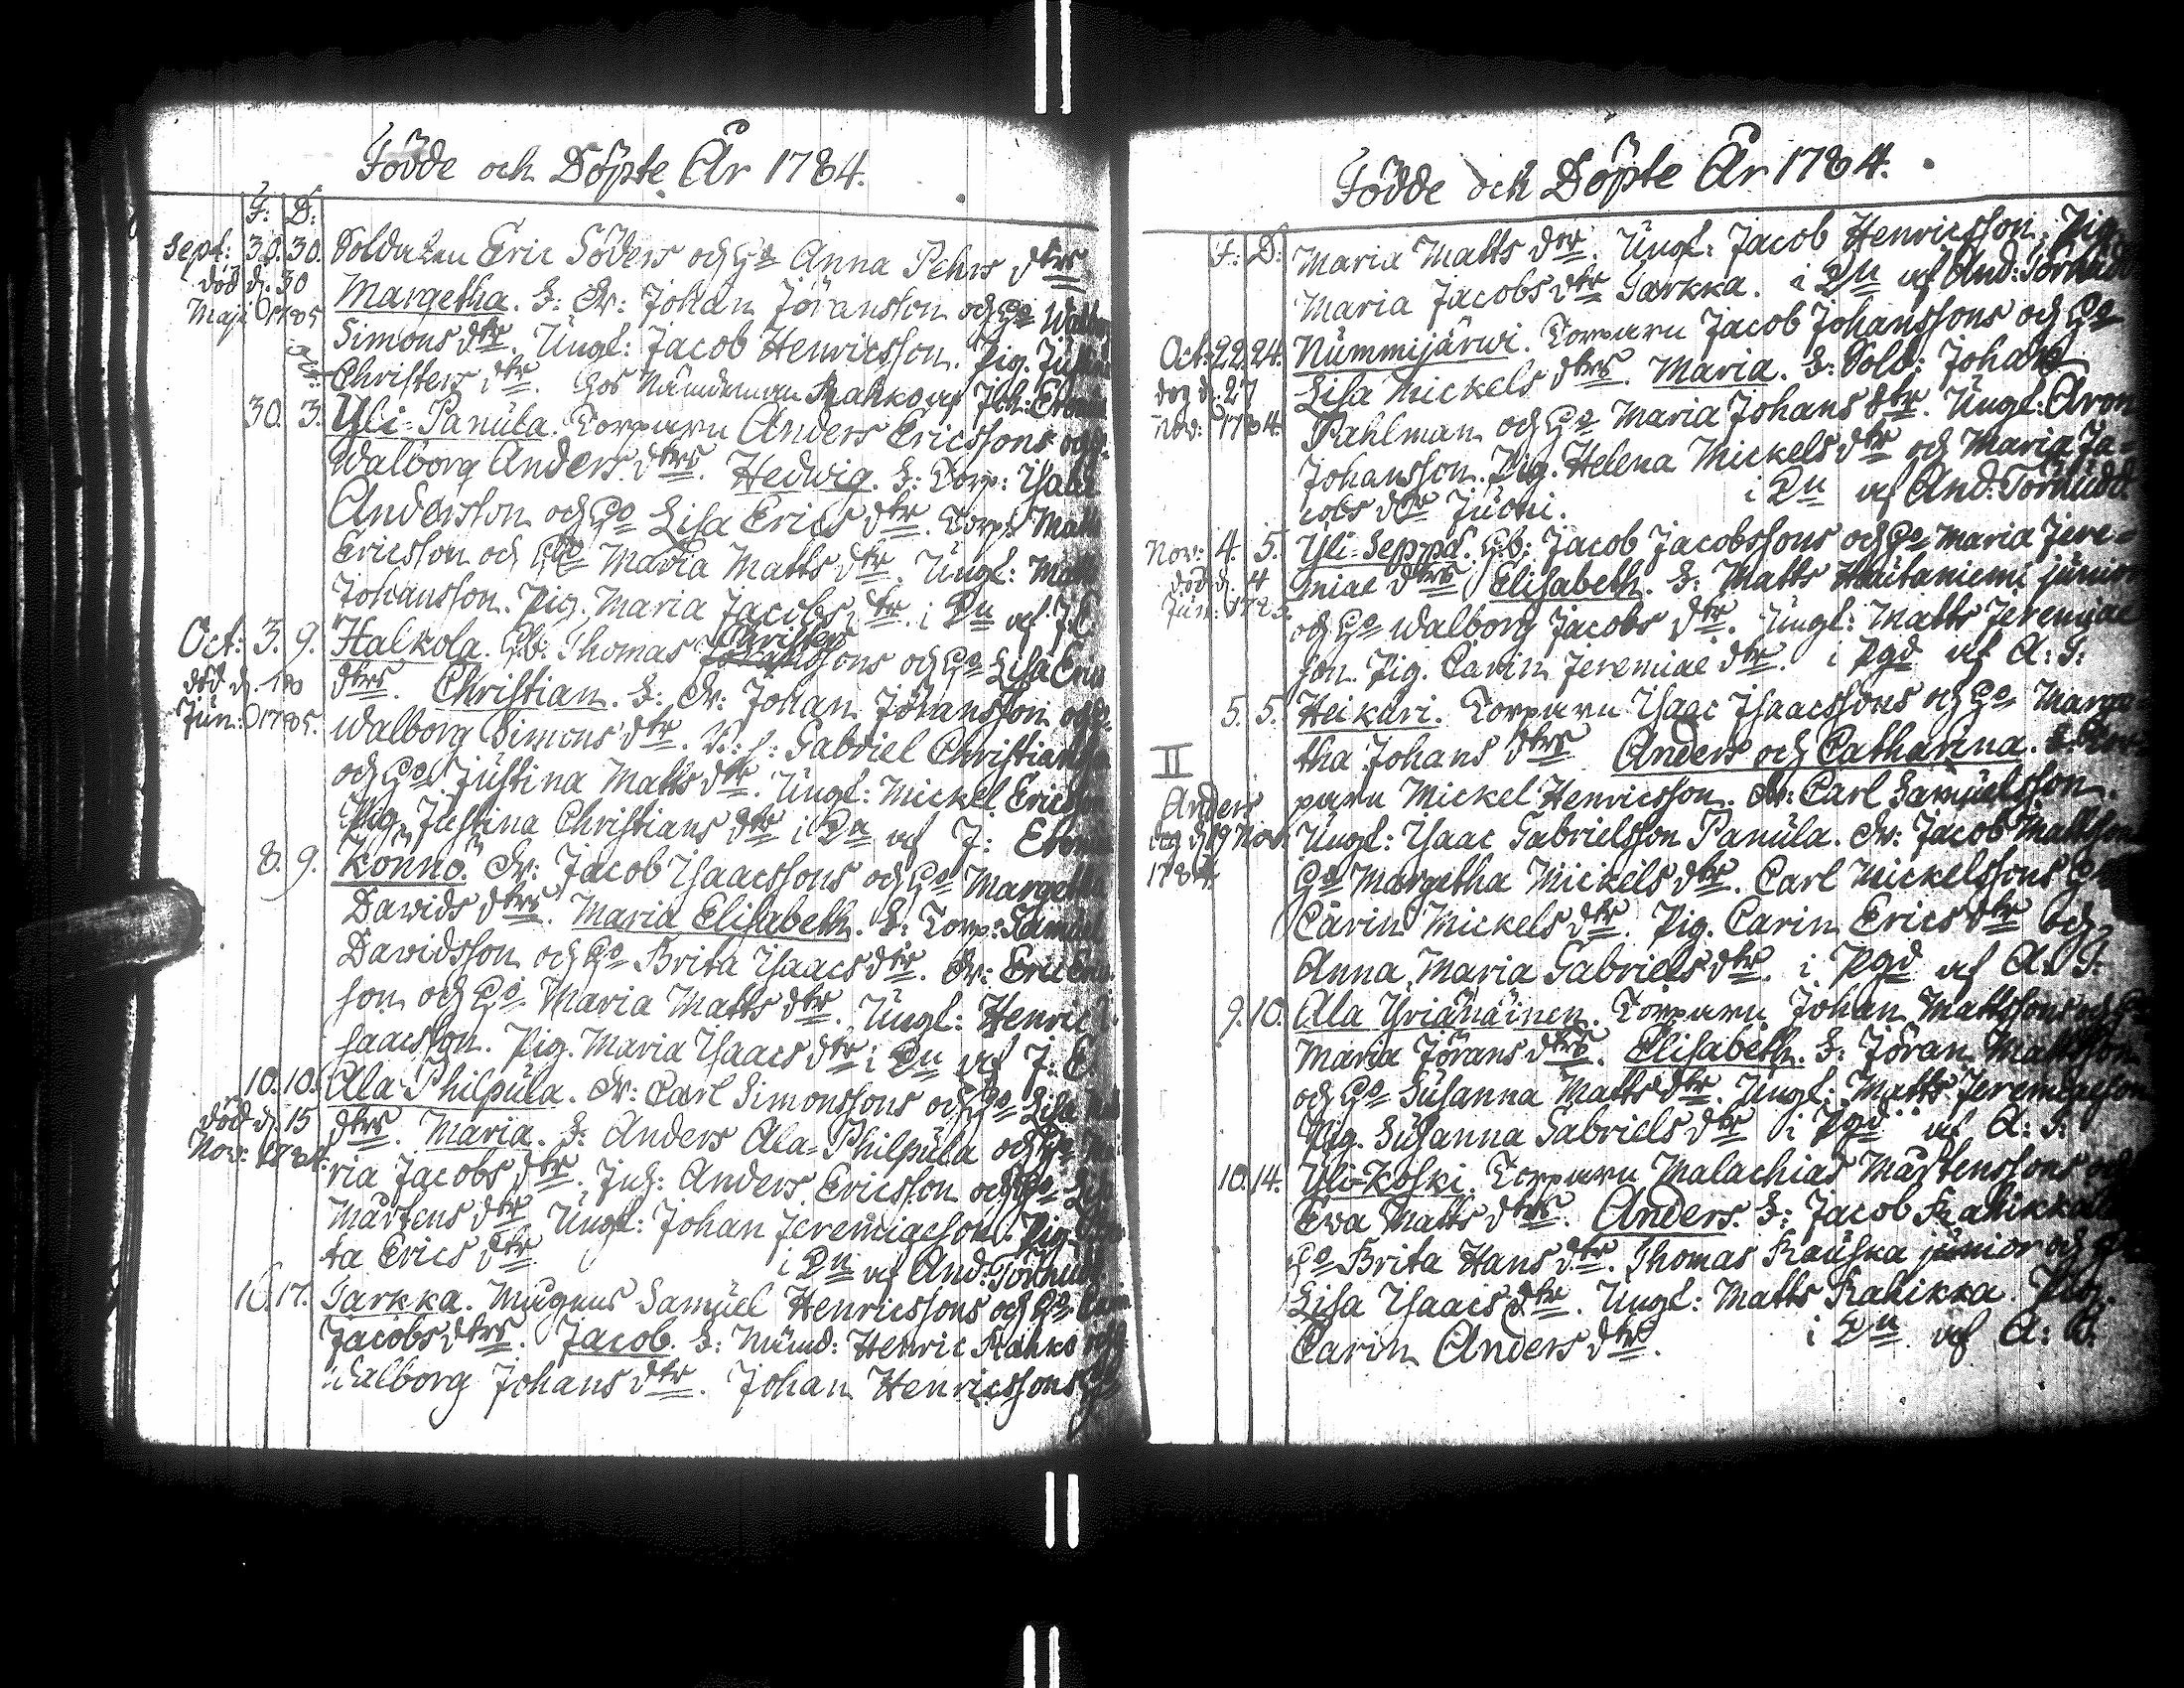 Födde och Döpte År 1784.
F: D:
Sept: 30. 30. Soldaten Eric Söders och H:o Anna Pehrs dtrs
död d. 30 Margetha. F: Dr: Johan Jöransson och H:o Walborg
Maji 1785 Simons dtr. Ungl: Jacob Henricsson. Pig.
Christers dtr. hos Nämdeman Rahko af
30. 3. Yli-Panula. Torparn Anders Ericssons och
Walborg Anders dtrs. Hedwig. F: Torp: Isaac
Andersson och H:o Lisa Erics dtr. Torp: Matts
Ericsson och H:o Maria Matts dtr. Ungl: Matts
Johansson. Pig. Maria Jacobs dtr. i Dn af J. E.
Oct: 3. 9. Halkola. Gb: Thomas Christerssons och H:o Lisa Erics
död d. 10 dtrs. Christian. F: Dr: Johan Jöransson och
Jun: 1785. Walborg Simons dtr. Gabriel Christiansson
och H:o Justina Matts dtr. Ungl: Mickel Ericsson
Pig. Justina Christians dtr i Dn af J:
8. 9. Könnö. Dr: Jacob Isaacssons och H:o Margetha
Dawids dtrs. Maria Elisabeth. F: Torp: Samuel
Davidsson och H:o Brita Isaacs dtr. Dr: Eric Erics
son och H:o Maria Matts dtr. Ungl: Henric I.
saacsson. Pig. Maria Isaacs dtr i Dn af J: E.
10. 10. Ala Philpula. Dr: Carl Simonssons och H:o Lisa
död d. 15 dtrs. Maria. F: Anders Ala-Philpula och H:o Ma
Nov: 1784. ria Jacobs dtr. Inh: Anders Ericsson och H:o
Mårtens dtr Ungl: Johan Jeremiaeson. Pig.
ta Erics dtr i Dn af And: Törnudd.
16. 17. Sarkka. Magnus Samuel Henricssons och H:o
Jacobs dtrs. Jacob. F: Nämd: Henric Rahko
Walborg Johans dtr. Johan Henricssons
Födde och Döpte År 1784.
F: D: Maria Matts dtr. Ungl: Jacob Henricsson. Pig.
Maria Jacobs dtr Sarkka. i Dn af And: Törnudd
Oct: 22. 24. Nummijärwi. Torparn Jacob Johanssons och H:o
dog d. 27 Lisa Mickels dtrs. Maria. F: Sold: Johan
Nov: 1784. Pahlman och H:o Maria Johans dtr. Ungl: Aron
Johansson. Pig. Helena Mickels dtr och Maria Ja-
cobs dtr Juoni. i Dn af And: Törnudd.
Nov: 4. 5. Yli-Seppä. Gb: Jacob Jacobssons och H:o Maria Jere-
död d. 4 miae dtrs Elisabeth. F: Matts Hautaniemi junior
Jun: 1785. och H:o Walborg Jacobs dtr. Ungl: Matts Jeremiae
son. Pig. Carin Jeremiae dtr. i Pgd af A: T:
5. 5. Heikari. Torparn Isaac Isaacssons och H:o Marge
II tha Johans dtrs Anders och Catharina. F: Tor-
Anders parn Mickel Henricsson. Dr: Carl Samuelsson.
dog d. 19 Nov. Ungl: Isaac Gabrielsson Panula. Dr: Jacob Mattssons
1784 H:o Margetha Mickels dtr. Carl Mickelssons H:o
Carin Mickels dtr. Pig. Carin Erics dtr och
Anna Maria Gabriels dtr. i Pgd af A. T.
9. 10. Ala Yriänäinen. Torparn Johan Mattssons och H:o
Maria Jörans dtrs. Elisabeth. F: Jöran Mattsson
och H:o Susanna Matts dtr. Ungl: Matts Jeremiaeson
Pig. Susanna Gabriels dtr i Pgd af A: T:
10. 14. Yli-Koski. Torparn Malachias Mårtenssons och
Eva Matts dtrs. Anders. F: Jacob Rahikka
H:o Brita Hans dtr. Thomas Rauska junior och H:o
Lisa Isaacs dtr. Ungl: Matts Rahikka. Pig.
Carin Anders dtr. i Dn af A: